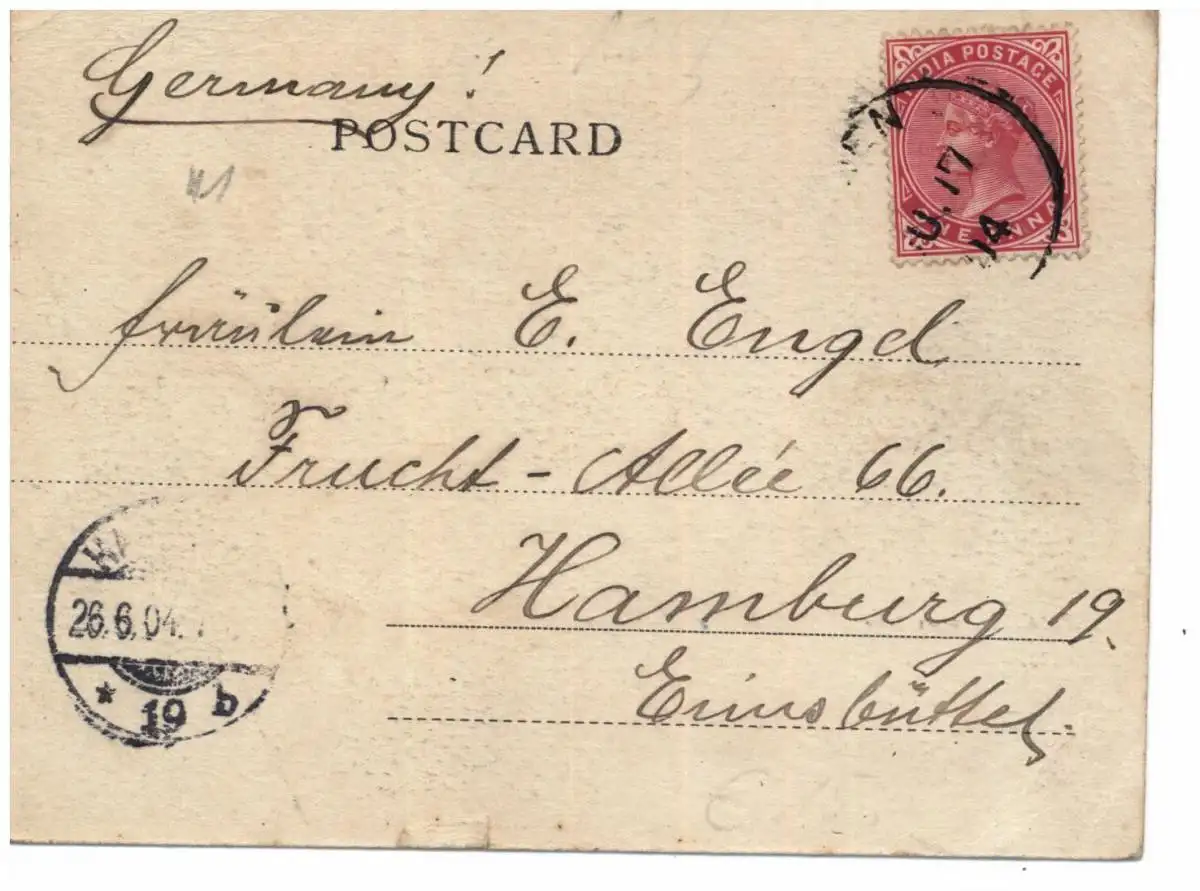 Germany!
POSTCARD
INDIA POSTAGE
17
04
ONE ANNA
Fräulein E. Engel
Frucht-Allée 66.
Hamburg 19.
Eimsbüttel.
26.6.04.
* 19 b